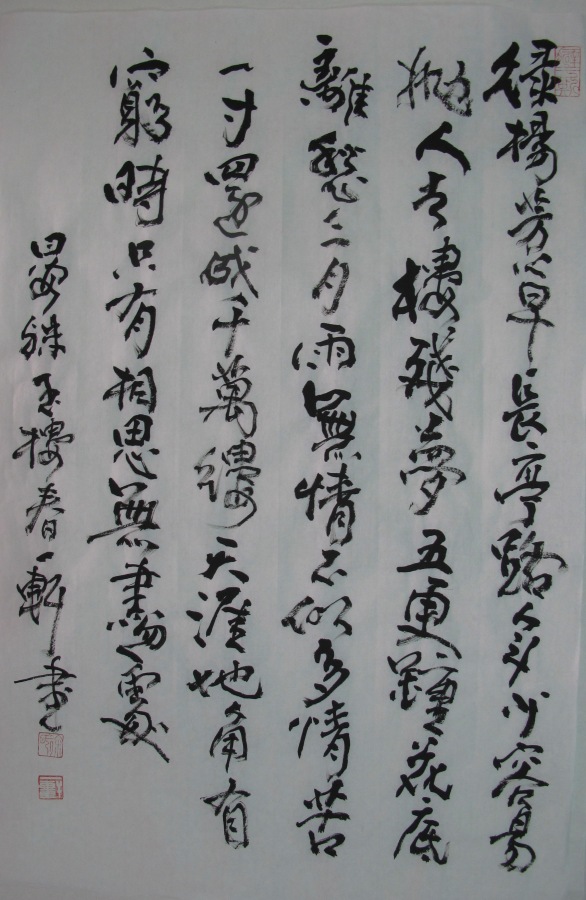 綠楊芳草長亭路年少容易
拋人去樓殘夢五更鐘花底
離愁三月雨無情不似多情苦
一寸還成千萬縷天涯地角有
窮時只有相思無盡處
晏殊玉樓春一軒書